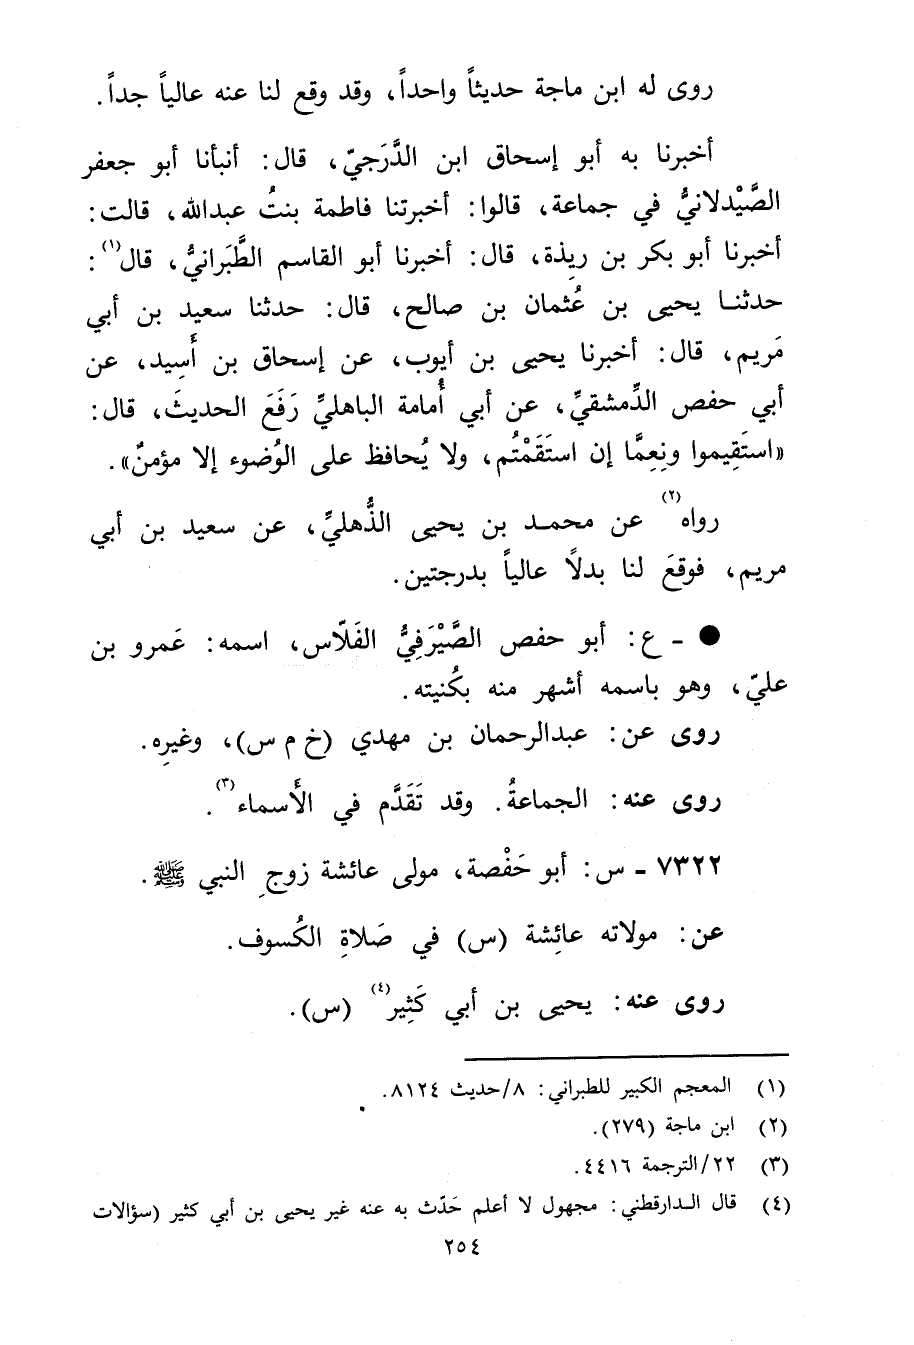 روى له ابن ماجة حديثاً واحداً، وقد وقع لنا عنه عالياً جداً.
أخبرنا به أبو إسحاق ابن الدَّرَجيّ، قال: أنبأنا أبو جعفر
الصَّيْدلانيُّ في جماعة، قالوا: أخبرتنا فاطمة بنتُ عبدالله، قالت:
أخبرنا أبو بكر بن رِيذة، قال: أخبرنا أبو القاسم الطَّبَرانيُّ، قال(١):
حدثنا يحيى بن عُثمان بن صالح، قال: حدثنا سعيد بن أبي
مَريم، قال: أخبرنا يحيى بن أيوب، عن إسحاق بن أَسِيد، عن
أبي حفص الدِّمشقيِّ، عن أبي أُمامة الباهليِّ رَفَعَ الحديثَ، قال:
«استَقِيموا ونِعِمَّا إن استَقَمْتُم، ولا يُحافظ على الوُضوء إلا مؤمنٌ».
رواه(٢) عن محمد بن يحيى الذُّهليِّ، عن سعيد بن أبي
مريم، فوقعَ لنا بدلًا عالياً بدرجتين.
● ـ ع: أبو حفص الصَّيْرَفِيُّ الفَلّاس، اسمه: عَمرو بن
عليّ، وهو باسمه أشهر منه بكُنيته.
روى عن: عبدالرحمان بن مهدي (خ م س)، وغيرِه.
روى عنه: الجماعةُ. وقد تَقَدَّم في الأَسماء(٣).
٧٣٢٢ ـ س: أبو حَفْصة، مولى عائشة زوجِ النبي ﷺ.
عن: مولاته عائِشة (س) في صَلاةِ الكُسوف.
روى عنه: يحيى بن أبي كَثِير(٤) (س).
(١) المعجم الكبير للطبراني: ٨/حديث ٨١٢٤.
(٢) ابن ماجة (٢٧٩).
(٣) ٢٢/الترجمة ٤٤١٦.
(٤) قال الدارقطني: مجهول لا أعلم حَدّث به عنه غير يحيى بن أبي كثير (سؤالات
٢٥٤